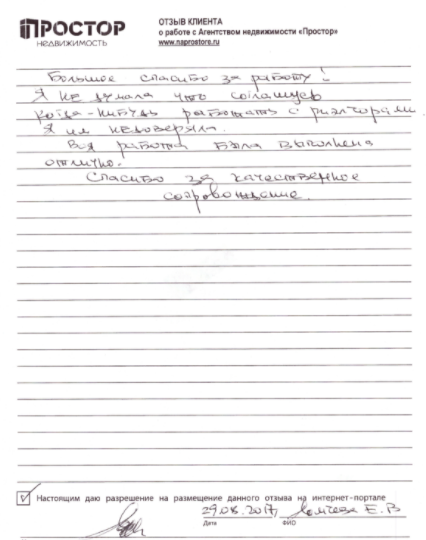 ПРОСТОР
НЕДВИЖИМОСТЬ
ОТЗЫВ КЛИЕНТА
о работе с Агентством недвижимости «Простор»
www.naprostore.ru
Большое спасибо за работу!
Я не думала что соглашусь
когда-нибудь работать с риэлторами
Я им недоверяла.
Вся работа была выполнена
отлично.
Спасибо за качественное
сопровождение.
Настоящим даю разрешение на размещение данного отзыва на интернет-портале
29.08.2017 Е.В
Дата ФИО